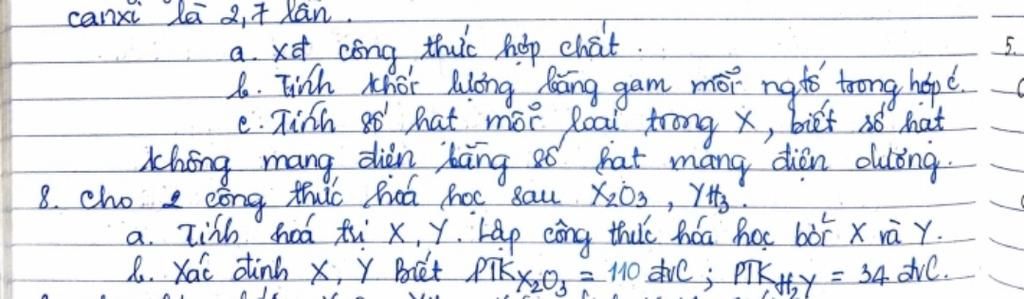 canxi là 2,7 lần.
a. xđ công thức hợp chất.
b. Tính khối lượng bằng gam mỗi ngtố trong hợp c.
c. Tính số hạt mỗi loại trong X, biết số hạt
không mang điện bằng số hạt mang điện dương.
5.
8. Cho 2 công thức hoá học sau X₂O₃, YH₃.
a. Tính hoá trị X, Y. Lập công thức hóa học bởi X và Y.
b. Xác định X, Y Biết PTK X₂O₃ = 110 đvC; PTK H₂Y = 34 đvC.